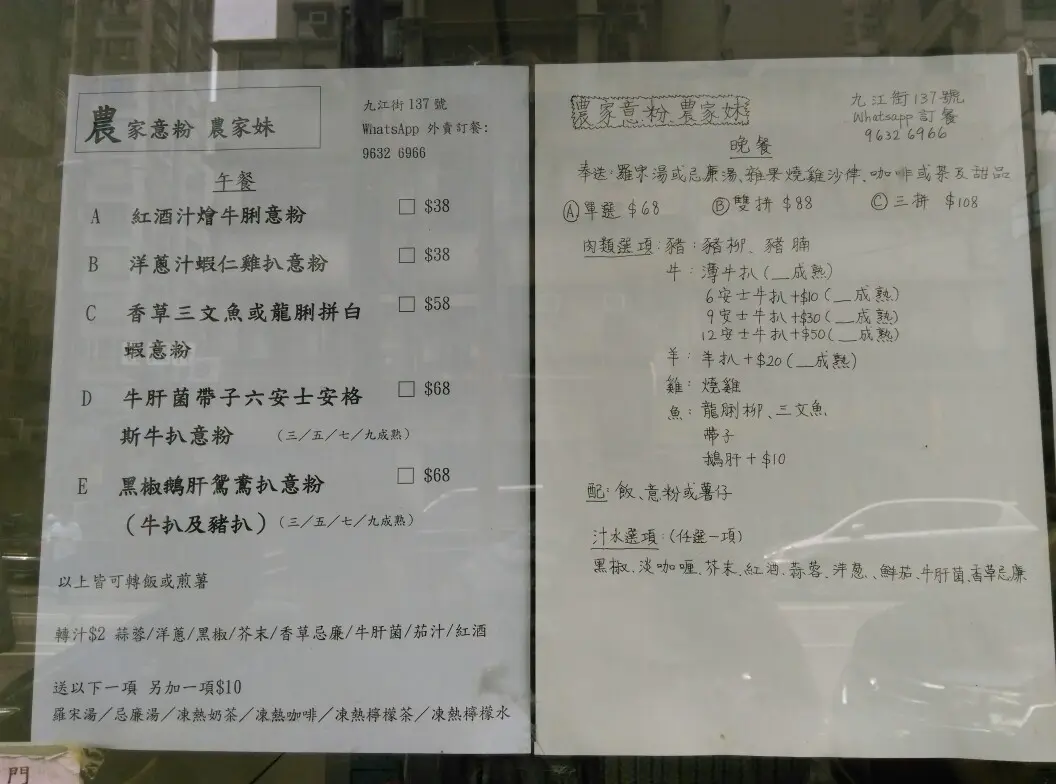 農家意粉 農家妹
九江街137號
WhatsApp 外賣訂餐:
9632 6966
午餐
A 紅酒汁燴牛脷意粉 □ $38
B 洋蔥汁蝦仁雞扒意粉 □ $38
C 香草三文魚或龍脷拼白 □ $58
蝦意粉
D 牛肝菌帶子六安士安格 □ $68
斯牛扒意粉 (三/五/七/九成熟)
E 黑椒鵝肝鴛鴦扒意粉 □ $68
(牛扒及豬扒) (三/五/七/九成熟)
以上皆可轉飯或煎薯
轉汁$2 蒜蓉/洋蔥/黑椒/芥末/香草忌廉/牛肝菌/茄汁/紅酒
送以下一項 另加一項$10
羅宋湯/忌廉湯/凍熱奶茶/凍熱咖啡/凍熱檸檬茶/凍熱檸檬水
農家意粉 農家妹
九江街137號
Whatsapp 訂餐
9632 6966
晚餐
奉送:羅宋湯或忌廉湯、雜果燒雞沙律、咖啡或茶及甜品
Ⓐ單選 $68 Ⓑ雙拼 $88 Ⓒ三拼 $108
肉類選項:豬:豬柳、豬腩
牛:薄牛扒(__成熟)
6安士牛扒+$10(__成熟)
9安士牛扒+$30(__成熟)
12安士牛扒+$50(__成熟)
羊:羊扒+$20(__成熟)
雞:燒雞
魚:龍脷柳、三文魚
帶子
鵝肝+$10
配:飯、意粉或薯仔
汁水選項:(任選一項)
黑椒、淡咖喱、芥末、紅酒、蒜蓉、洋蔥、鮮茄、牛肝菌、香草忌廉
門